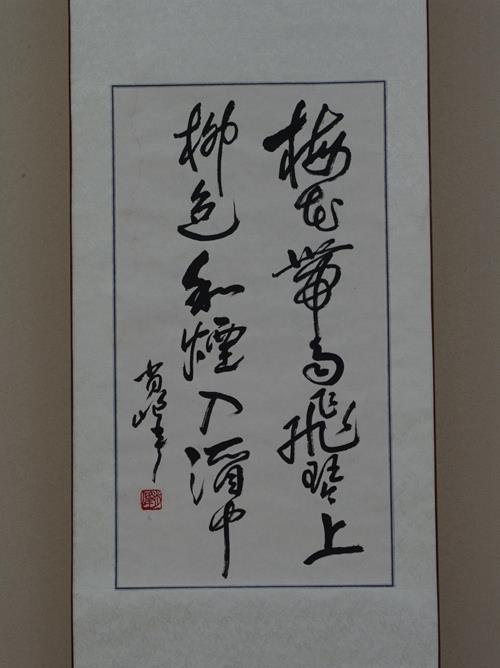 梅花帶雨飛琴上
柳色和煙入酒中